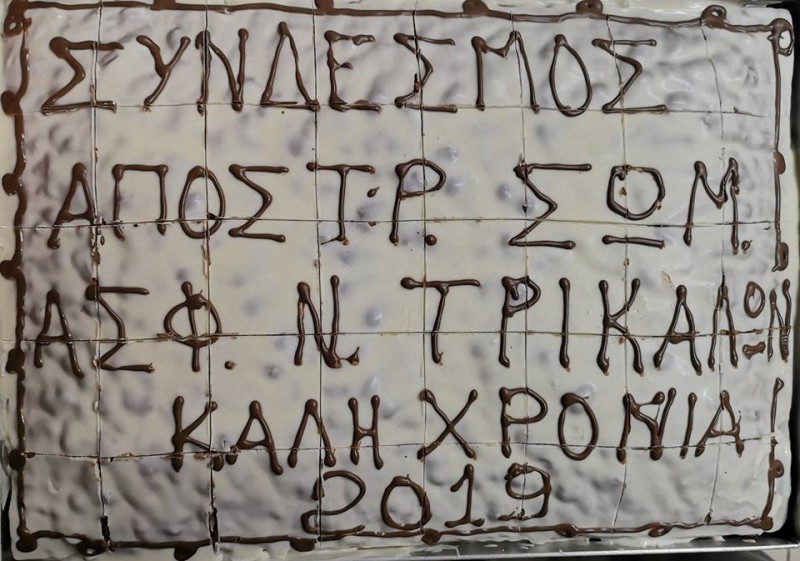 ΣΥΝΔΕΣΜΟΣ
ΑΠΟΣΤ.Ρ. ΣΩΜ.
ΑΣΦ. Ν. ΤΡΙΚΑΛΩΝ
ΚΑΛΗ ΧΡΟΝΙΑ
2019